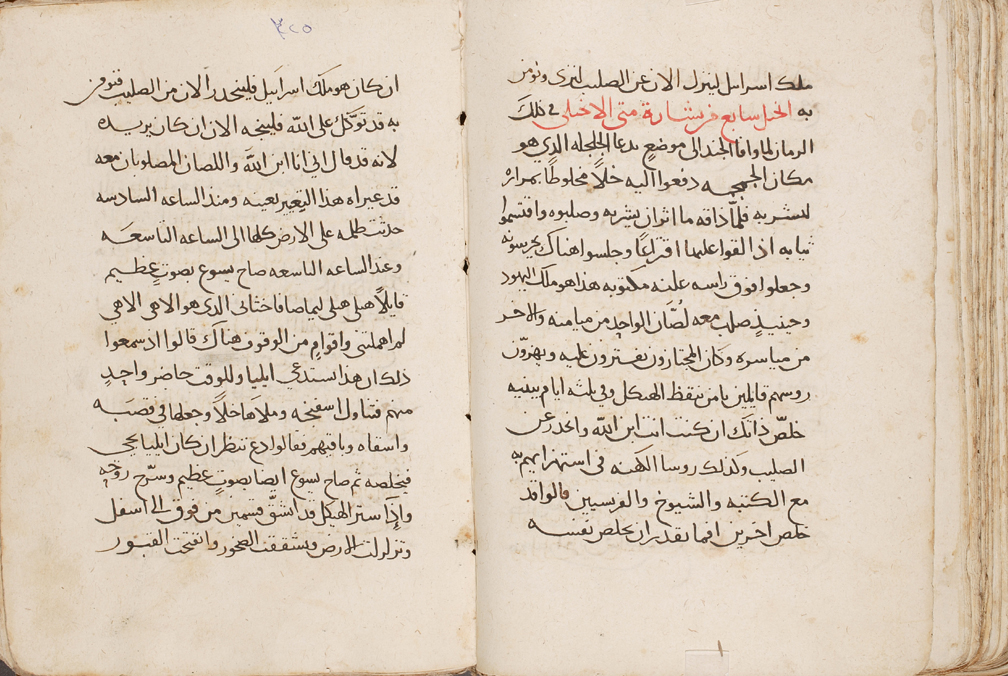 ملك اسرايل لينزل الان عن الصليب لنرى ونومن
به الانجيل سابع من بشارة متى الانجيلى في ذلك
الزمان لما وافا الجند الى موضع يدعا الجلجله الدي هو
مكان الجمجمه دفعوا اليه خلاً مخلوطًا بمرارة
ليشربه فلمّا ذاقه ما اثر ان يشربه وصلبوه واقتسموا
ثيابه اذ القوا عليها اقتراعًا وجلسوا هناك يحرسونه
وجعلوا فوق راسه علته مكتوبه هذا هو ملك اليهود
وحينيذٍ صلب معه لصّان الواحد من ميامنه والاخر
من مياسره وكان المجتازون يفترون عليه ويهزون
روسهم قايلين يا من ينقظ الهيكل وفي ثلثه ايام يبنيه
خلّص ذاتك ان كنت انت ابن اللّه وانحدر عن
الصليب وكذلك روسا الكهنه في استهزايهم به
مع الكتبه والشيوخ والفرسيين قالوا قد
خلص اخرين افما يقدر ان يخلص نفسه
٣٢٥
ان كان هو ملك اسرايل فلينحدر الان من الصليب فنومن
به قد توكّل على اللّه فلينجه الان ان كان يريده
لانه قد قال اني انا ابن اللّه واللصان المصلوبان معه
قد عيراه هذا التعيير بعينه ومند الساعه السادسه
حدثت ظلمه على الارض كلها الى الساعه التاسعه
وعند الساعه التاسعه صاح يسوع بصوتٍ عظيم
قايلاً هلى هلى ليما صافاختانى الدى هو الاهي الاهي
لم اهملتني واقوامٍ من الوقوف هناك قالوا اذ سمعوا
ذلك ان هذا استدعي ايليا وللوقت حاضر واحدٍ
منهم فتناول اسفنجه وملاها خلاً وجعلها في قصبه
واسقاه وباقيهم قالوا دع ننظر ان كان ايليا يجي
فيخلصه ثم صاح يسوع ايضا بصوتٍ عظيم وسرّح روحه
واذا ستر الهيكل قد انشقّ قسمين من فوق الى اسفل
وتزلزلت الارض وتشققت الصخور وانفتحت القبور